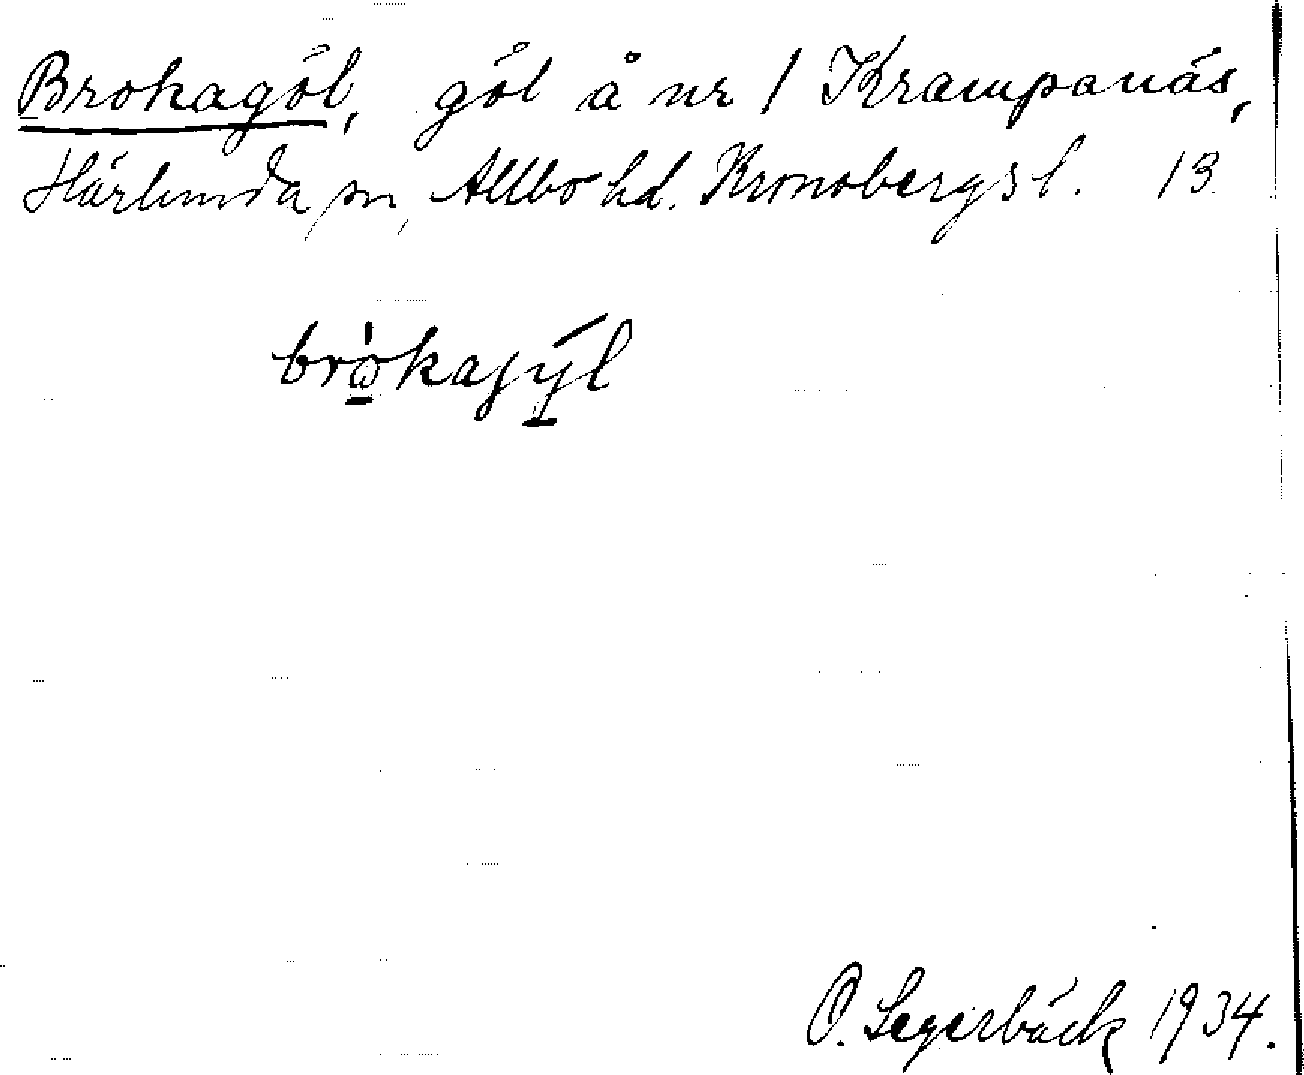 Brokagöl, göl å nr 1 Krampanäs,
Härlunda sn, Allbo hd. Kronobergs l. 13
brokajyl
O. Segerbäck 1934.